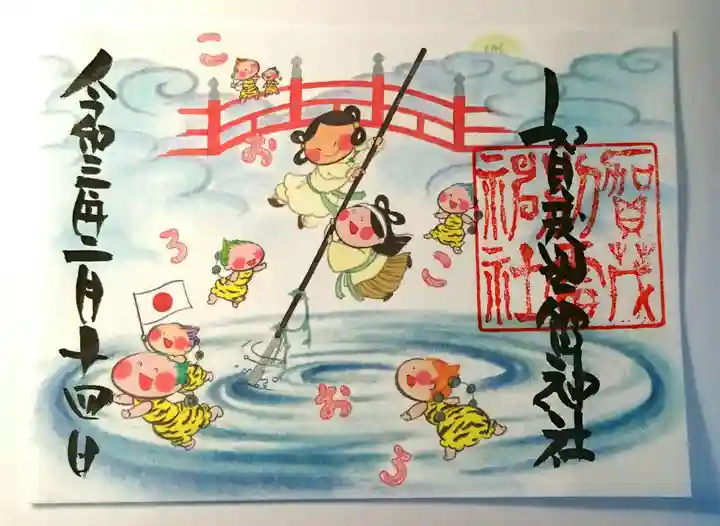 賀茂別雷神社
賀茂
別雷
神社
こおろ
こおろ
令和三年二月十四日